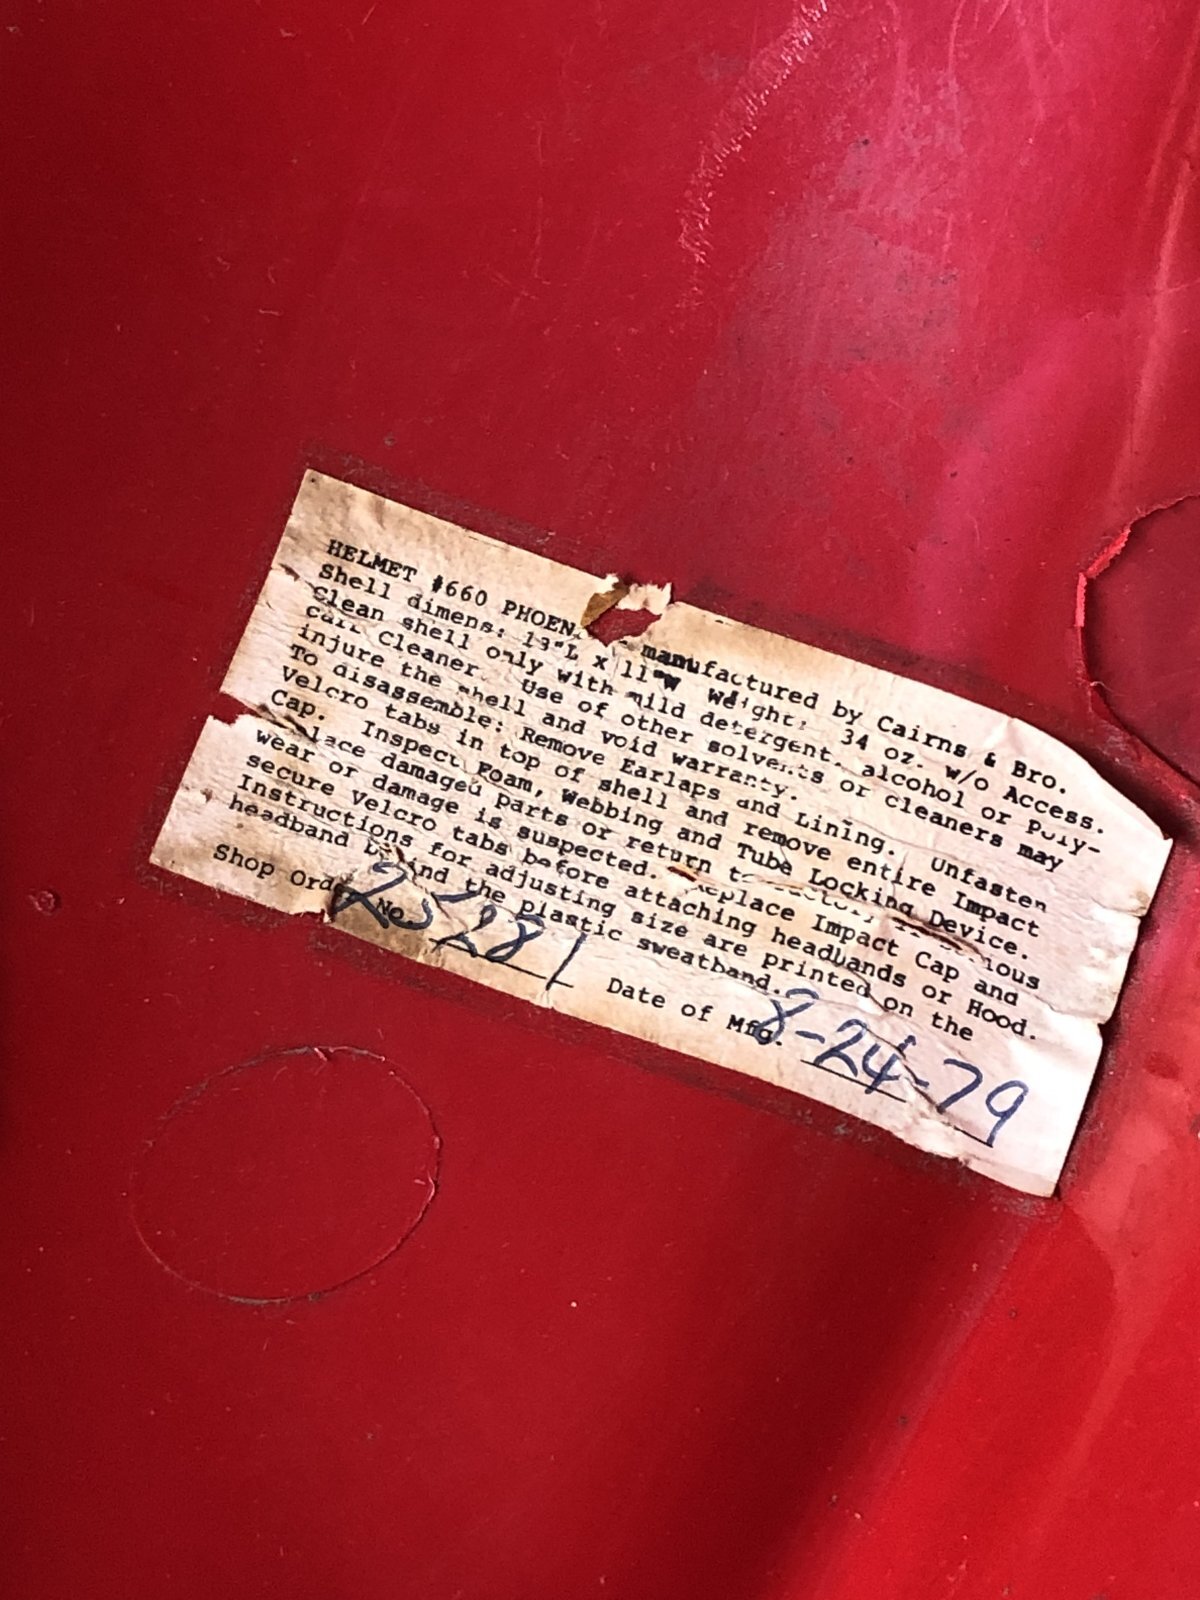 HELMET #660 PHOEN manufactured by Cairns & Bro.
Shell dimens: 13"L x 11"W Weight: 34 oz. w/o Access.
Clean shell only with mild detergent, alcohol or Poly-
Cleaner. Use of other solvents or cleaners may
injure the shell and void warranty.
To disassemble: Remove Earlaps and Lining. Unfasten
Velcro tabs in top of shell and remove entire Impact
Cap. Inspect Foam, Webbing and Tube Locking Device.
damaged parts or return
wear or damage is suspected. Replace Impact Cap and
secure Velcro tabs before attaching headbands or Hood.
Instructions for adjusting size are printed on the
headband behind the plastic sweatband.
Shop Order No. 25281 Date of Mfg. 8-24-79